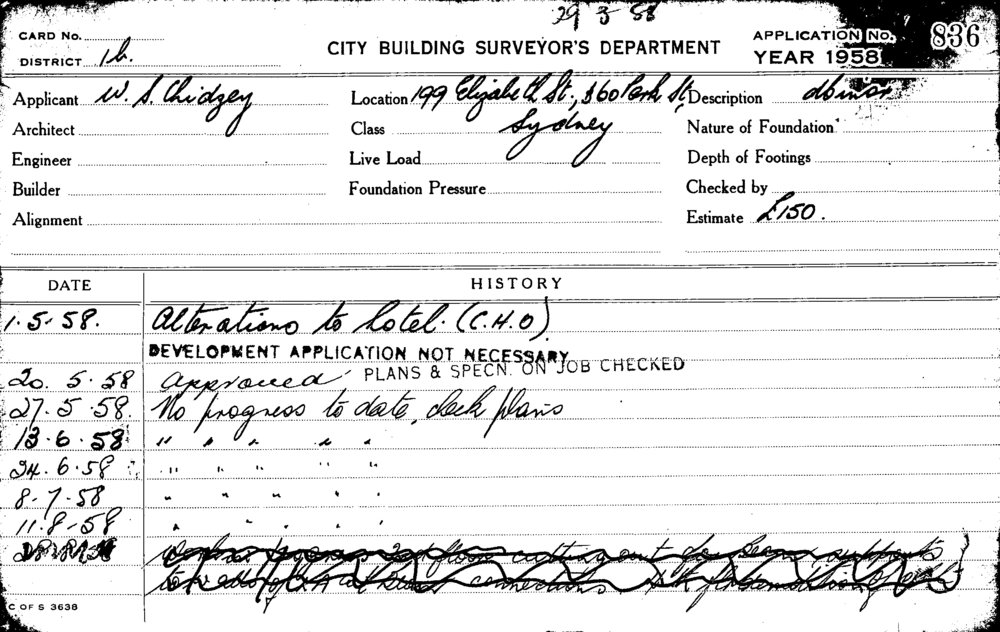 29 3 58
CARD No.
DISTRICT 1b.
CITY BUILDING SURVEYOR'S DEPARTMENT
APPLICATION No. 836
YEAR 1958
Applicant W. S. Chidzey
Location 199 Elizabeth St., & 60 Park St,
Sydney
Description
Architect
Class
Nature of Foundation
Engineer
Live Load
Depth of Footings
Builder
Foundation Pressure
Checked by
Alignment
Estimate £150.
DATE HISTORY
1.5.58. Alterations to hotel. (C.H.O)
DEVELOPMENT APPLICATION NOT NECESSARY
PLANS & SPECN. ON JOB CHECKED
20. 5.58 Approved
27.5.58. No progress to date, check plans
13.6.58 " " " " "
24.6.58 " " " " "
8.7.58 " " " "
11.8.58 " " " "
floor cutting out for beam supports
connections
C OF S 3638